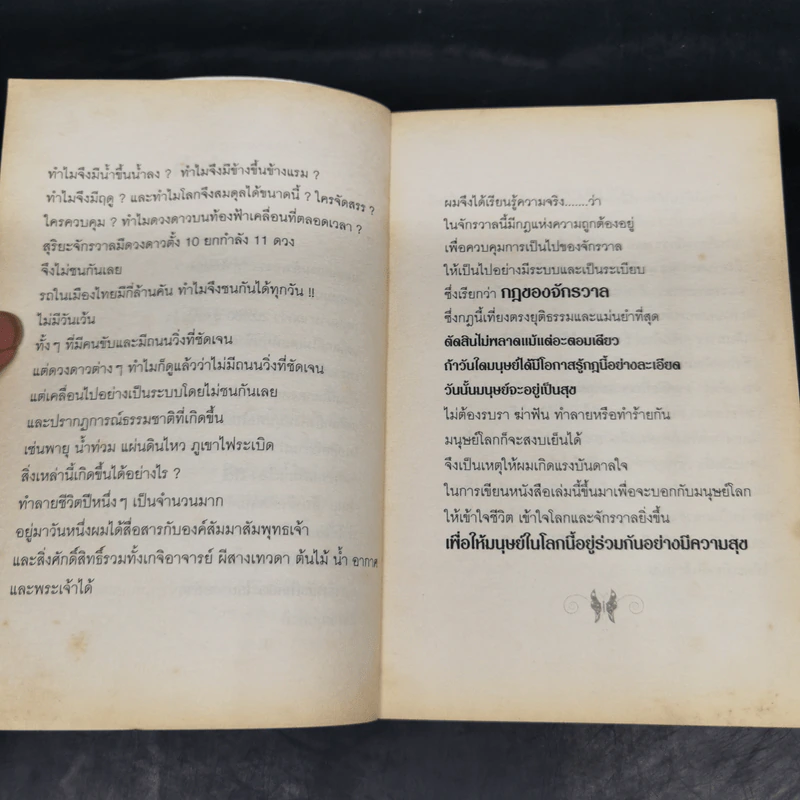 ทำไมจึงมีน้ำขึ้นน้ำลง ? ทำไมจึงมีข้างขึ้นข้างแรม ?
ทำไมจึงมีฤดู ? และทำไมโลกจึงสมดุลได้ขนาดนี้ ? ใครจัดสรร ?
ใครควบคุม ? ทำไมดวงดาวบนท้องฟ้าเคลื่อนที่ตลอดเวลา ?
สุริยะจักรวาลมีดวงดาวตั้ง 10 ยกกำลัง 11 ดวง
จึงไม่ชนกันเลย
รถในเมืองไทยมีกี่ล้านคัน ทำไมจึงชนกันได้ทุกวัน !!
ไม่มีวันเว้น
ทั้งๆ ที่มีคนขับและมีถนนวิ่งที่ชัดเจน
แต่ดวงดาวต่างๆ ทำไมก็ดูแล้วว่าไม่มีถนนวิ่งที่ชัดเจน
แต่เคลื่อนไปอย่างเป็นระบบโดยไม่ชนกันเลย
และปรากฏการณ์ธรรมชาติที่เกิดขึ้น
เช่นพายุ น้ำท่วม แผ่นดินไหว ภูเขาไฟระเบิด
สิ่งเหล่านี้เกิดขึ้นได้อย่างไร ?
ทำลายชีวิตปีหนึ่งๆ เป็นจำนวนมาก
อยู่มาวันหนึ่งผมได้สื่อสารกับองค์สัมมาสัมพุทธเจ้า
และสิ่งศักดิ์สิทธิ์รวมทั้งเกจิอาจารย์ ผีสางเทวดา ต้นไม้ น้ำ อากาศ
และพระเจ้าได้
ผมจึงได้เรียนรู้ความจริง.......ว่า
ในจักรวาลนี้มีกฎแห่งความถูกต้องอยู่
เพื่อควบคุมการเป็นไปของจักรวาล
ให้เป็นไปอย่างมีระบบและเป็นระเบียบ
ซึ่งเรียกว่า กฎของจักรวาล
ซึ่งกฎนี้เที่ยงตรงยุติธรรมและแม่นยำที่สุด
ตัดสินไม่พลาดแม้แต่อะตอมเดียว
ถ้าวันใดมนุษย์ได้มีโอกาสรู้กฎนี้อย่างละเอียด
วันนั้นมนุษย์จะอยู่เป็นสุข
ไม่ต้องรบรา ฆ่าฟัน ทำลายหรือทำร้ายกัน
มนุษย์โลกก็จะสงบเย็นได้
จึงเป็นเหตุให้ผมเกิดแรงบันดาลใจ
ในการเขียนหนังสือเล่มนี้ขึ้นมาเพื่อจะบอกกับมนุษย์โลก
ให้เข้าใจชีวิต เข้าใจโลกและจักรวาลยิ่งขึ้น
เพื่อให้มนุษย์ในโลกนี้อยู่ร่วมกันอย่างมีความสุข